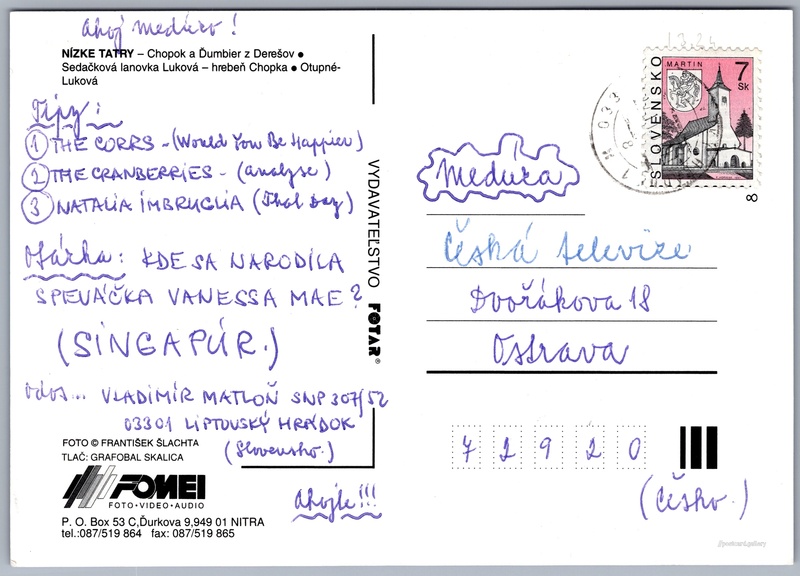 Ahoj medúzo!
NÍZKE TATRY – Chopok a Ďumbier z Derešov ●
Sedačková lanovka Luková – hrebeň Chopka ● Otupné-
Luková
Tipy:
1 THE CORRS - (Would You Be Happier)
2 THE CRANBERRIES - (analyse)
3 NATALIA IMBRUGLIA (That Day)
Otázka: KDE SA NARODILA
SPEVÁČKA VANESSA MAE?
(SINGAPÚR.)
odos... VLADIMÍR MATLOŇ SNP 307/52
03301 LIPTOVSKÝ HRÁDOK
(Slovensko.)
FOTO © FRANTIŠEK ŠLACHTA
TLAČ: GRAFOBAL SKALICA
FOMEI
FOTO•VIDEO•AUDIO
P. O. Box 53 C,Ďurkova 9,949 01 NITRA
tel.:087/519 864 fax: 087/519 865
Ahojte!!!
VYDAVATEĽSTVO FOTAR®
SLOVENSKO
MARTIN
7
Sk
8
033
Medúza
Česká televize
Dvořákova 18
Ostrava
72920
(Česko.)
//postcard.gallery